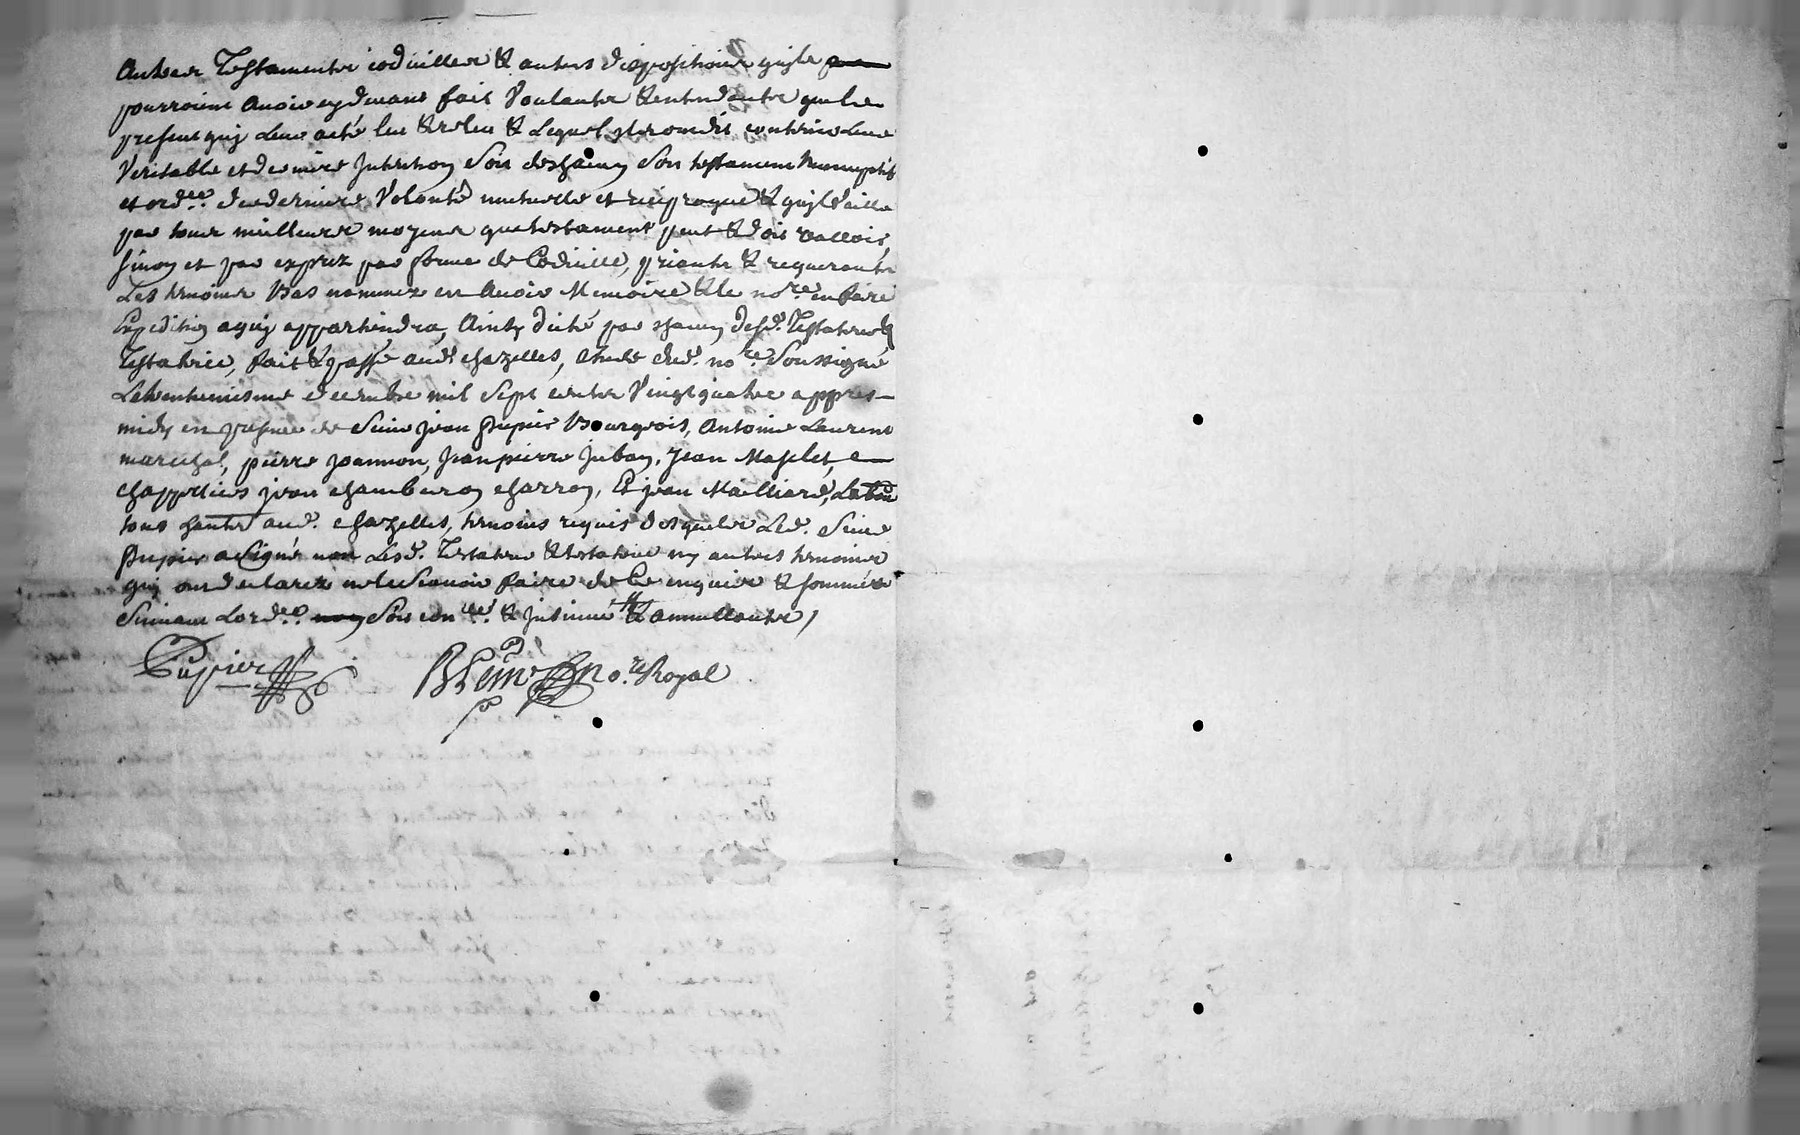 Autres Testaments codicilles & autres dispositions quils
pourroient Avoir cydevant fait Voulants & entendants que le
present quj Leur a eté leu & releu & Lequel ils ont dit contenir Leur
Veritable et derniere Intention Soit deschacun Son testament Nuncupatif
et ord.ce de derniere Volonté mutuelle et reciproque & quil Vaille
par tous meilleurs moyens que testament peut & doit valloir
sinon et par exprez par forme de Codicille, priants & requerants
Les temoins Bas nommez en Avoir Memoire & le no.re en faire
Expedition a quj appartiendra, Ainsy dicté par chacun desd. Testateur &
Testatrice, fait & passé aud. chazelles, Etude dud. no.re Soussigné
Le trentuniesme decembre mil Sept cents Vingt quatre appres
midy en presence de Sieur jean Pupier Bourgeois, Antoine Laurent
marechal, pierre Joannon, Jean pierre Juban, Jean Maselet,
chappeliers jean chamberon charron, Et jean Mailliard,
tous habitants aud. chazelles, temoins requis desquels Led. Sieur
Pupier a Signé non Lesd. Testateur & testatrice ny autres temoins
quj ont declarez ne le Scavoir faire de Ce enquis & sommés
Suivant Lord.ce Soit con.lé & Insinué & annullants /
Pupier no.re Royal